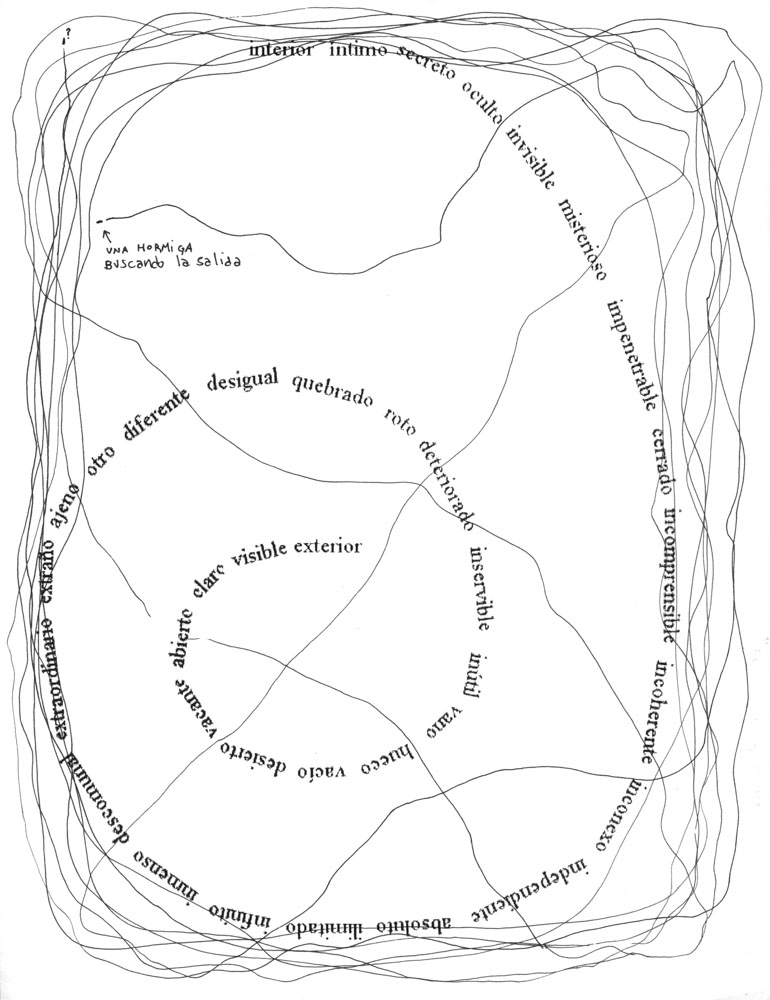 ?
interior íntimo secreto oculto invisible misterioso impenetrable cerrado incomprensible incoherente inconexo independiente absoluto ilimitado infinito inmenso descomunal extraordinario extraño ajeno otro diferente desigual quebrado roto deteriorado inservible inútil vano hueco vacío desierto vacante abierto claro visible exterior
UNA HORMIGA
BUSCANDO la salida